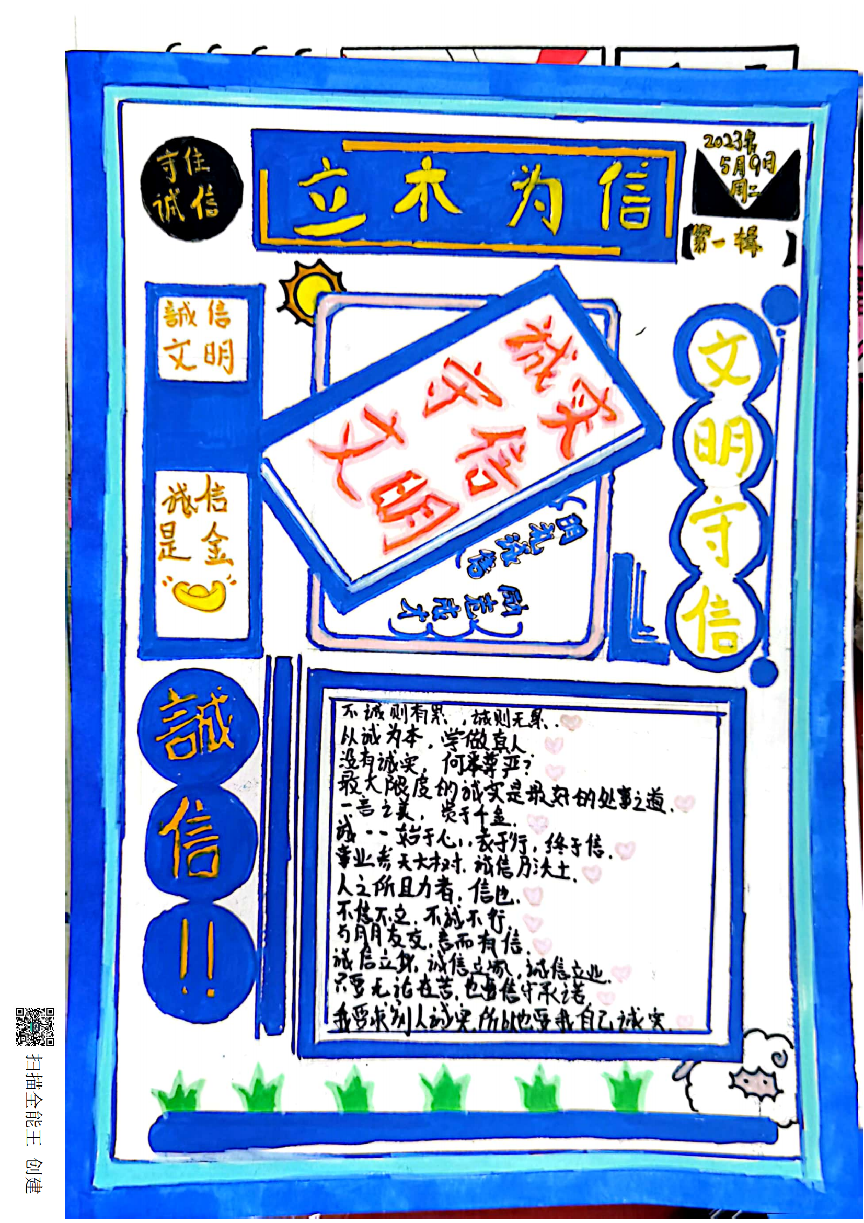 守住
诚信
立木为信
2023年
5月9日
周二
【第一辑】
誠信
文明
诚信
是金
诚实
守信
文明
明礼诚信
励志成才
文明守信
誠信!!
不诚则有累，诚则无累.
从诚为本，学做真人.
没有诚实，何来尊严？
最大限度的诚实是最好的处事之道.
一言之美，贵于千金.
诚--始于心，表于行，终于信.
事业参天大树，诚信乃沃土.
人之所助者，信也.
不信不立，不诚不行.
与朋友交，言而有信.
诚信立身，诚信立家，诚信立业.
只要无论在苦，也要信守承诺
我要求别人诚实，所以也要我自己诚实.
扫描全能王 创建